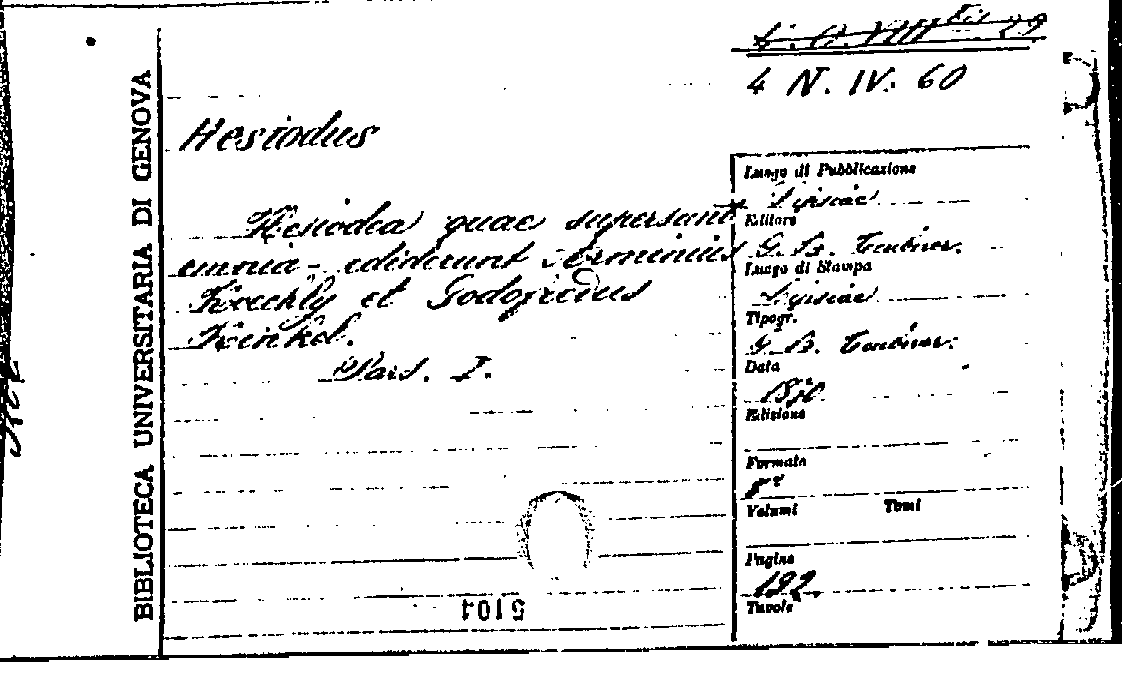 4 N. IV. 60
BIBLIOTECA UNIVERSITARIA DI GENOVA
Hesiodus
Hesiodea quae supersunt
omnia - ediderunt Arminius
Koechly et Godofredus
Kinkel.
Pars. I.
5101
Luogo di Pubblicazione
Lipsiae
Editore
G. B. Teubner.
Luogo di Stampa
Lipsiae
Tipogr.
G. B. Teubner.
Data
1870.
Edizione
Formato
8º
Volumi Tomi
Pagine
192.
Tavole